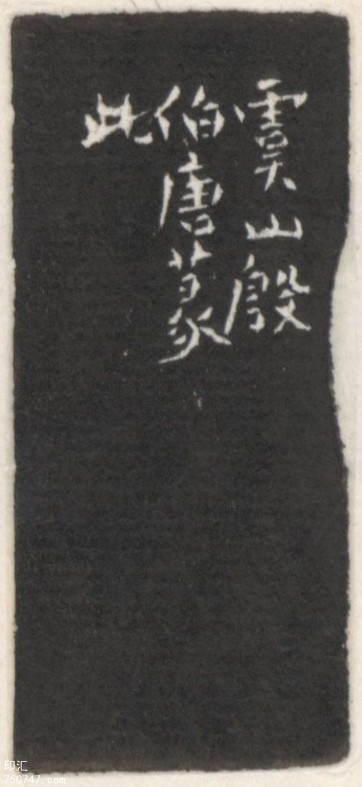 虞山殷
伯唐篆
此
印汇
750747.com